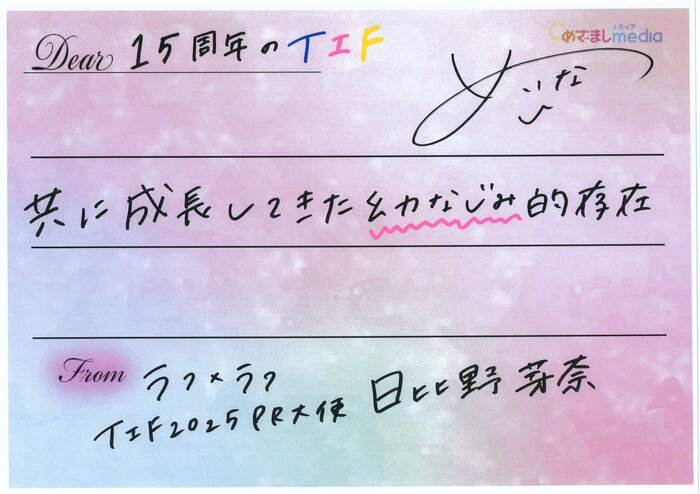 Dear 15周年のTIF
めざましmedia
メディア
めいな
共に成長してきた幼なじみ的存在
From ラフ×ラフ
TIF2025PR大使 日比野芽奈